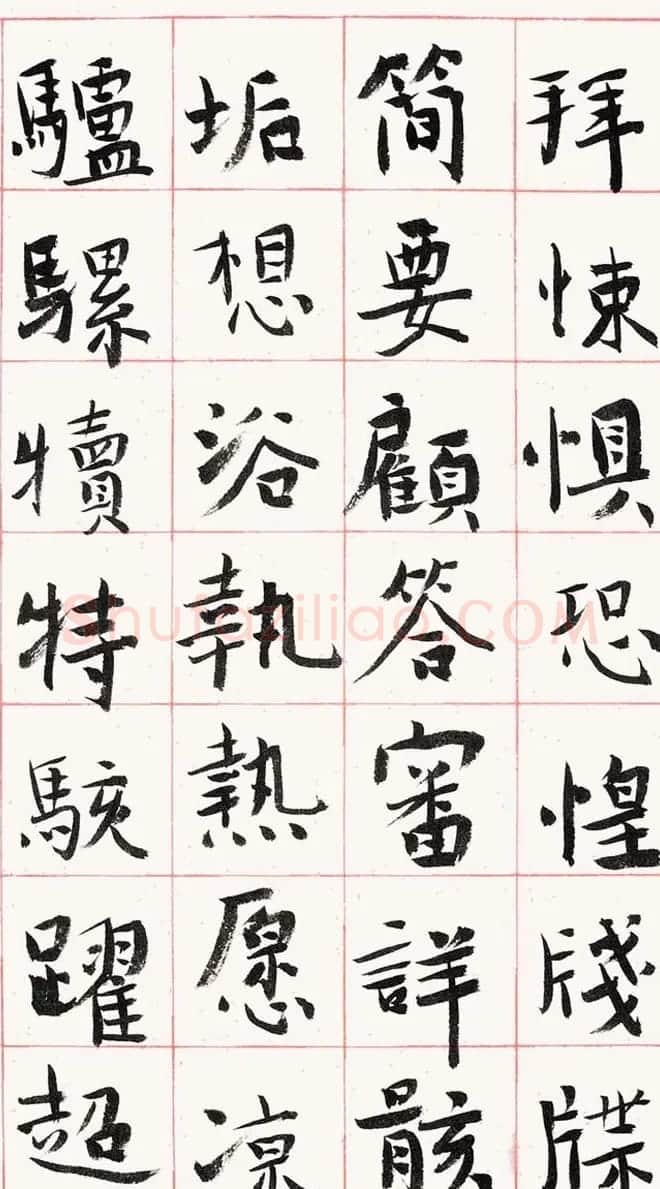 拜悚懼恐惶牋牒
簡要顧答審詳骸
垢想浴執熱愿凉
驢騾犢特駭躍超
Shufaziliao.COM